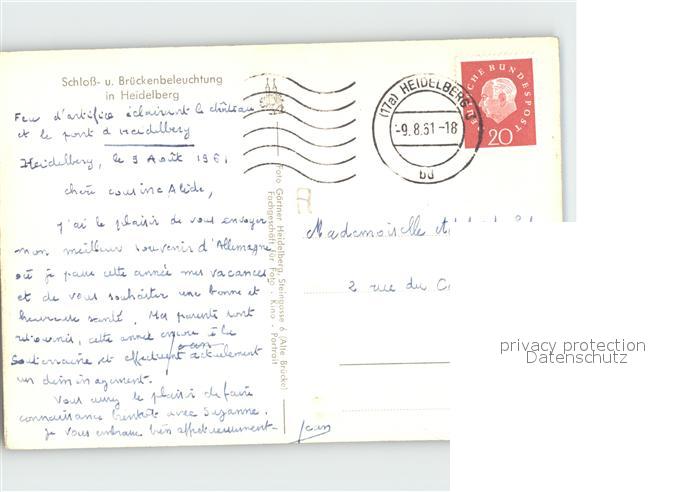 Schloß- u. Brückenbeleuchtung
in Heidelberg
Feu d'artifice éclairant le château
et le pont d'Heidelberg
Heidelberg, le 9 Août 1961
chère cousine
J'ai le plaisir de vous envoyer
mon meilleur souvenir d'Allemagne
où je passe cette année mes vacances
et de vous souhaiter une bonne et
heureuse santé. Mes parents sont
retournés, cette année encore à la
Souterraine et effectuent actuellement
un déménagement.
Vous aurez le plaisir de faire
connaissance bientôt avec Suzanne.
Je vous embrasse bien affectueusement
Jean
Foto Gärtner Heidelberg, Steingasse 6 (Alte Brücke)
Fachgeschäft für Foto - Kino - Portrait
(17a) HEIDELBERG
-9.8.61-18
bd
DEUTSCHE BUNDESPOST
20
Mademoiselle
2 rue du
privacy protection
Datenschutz